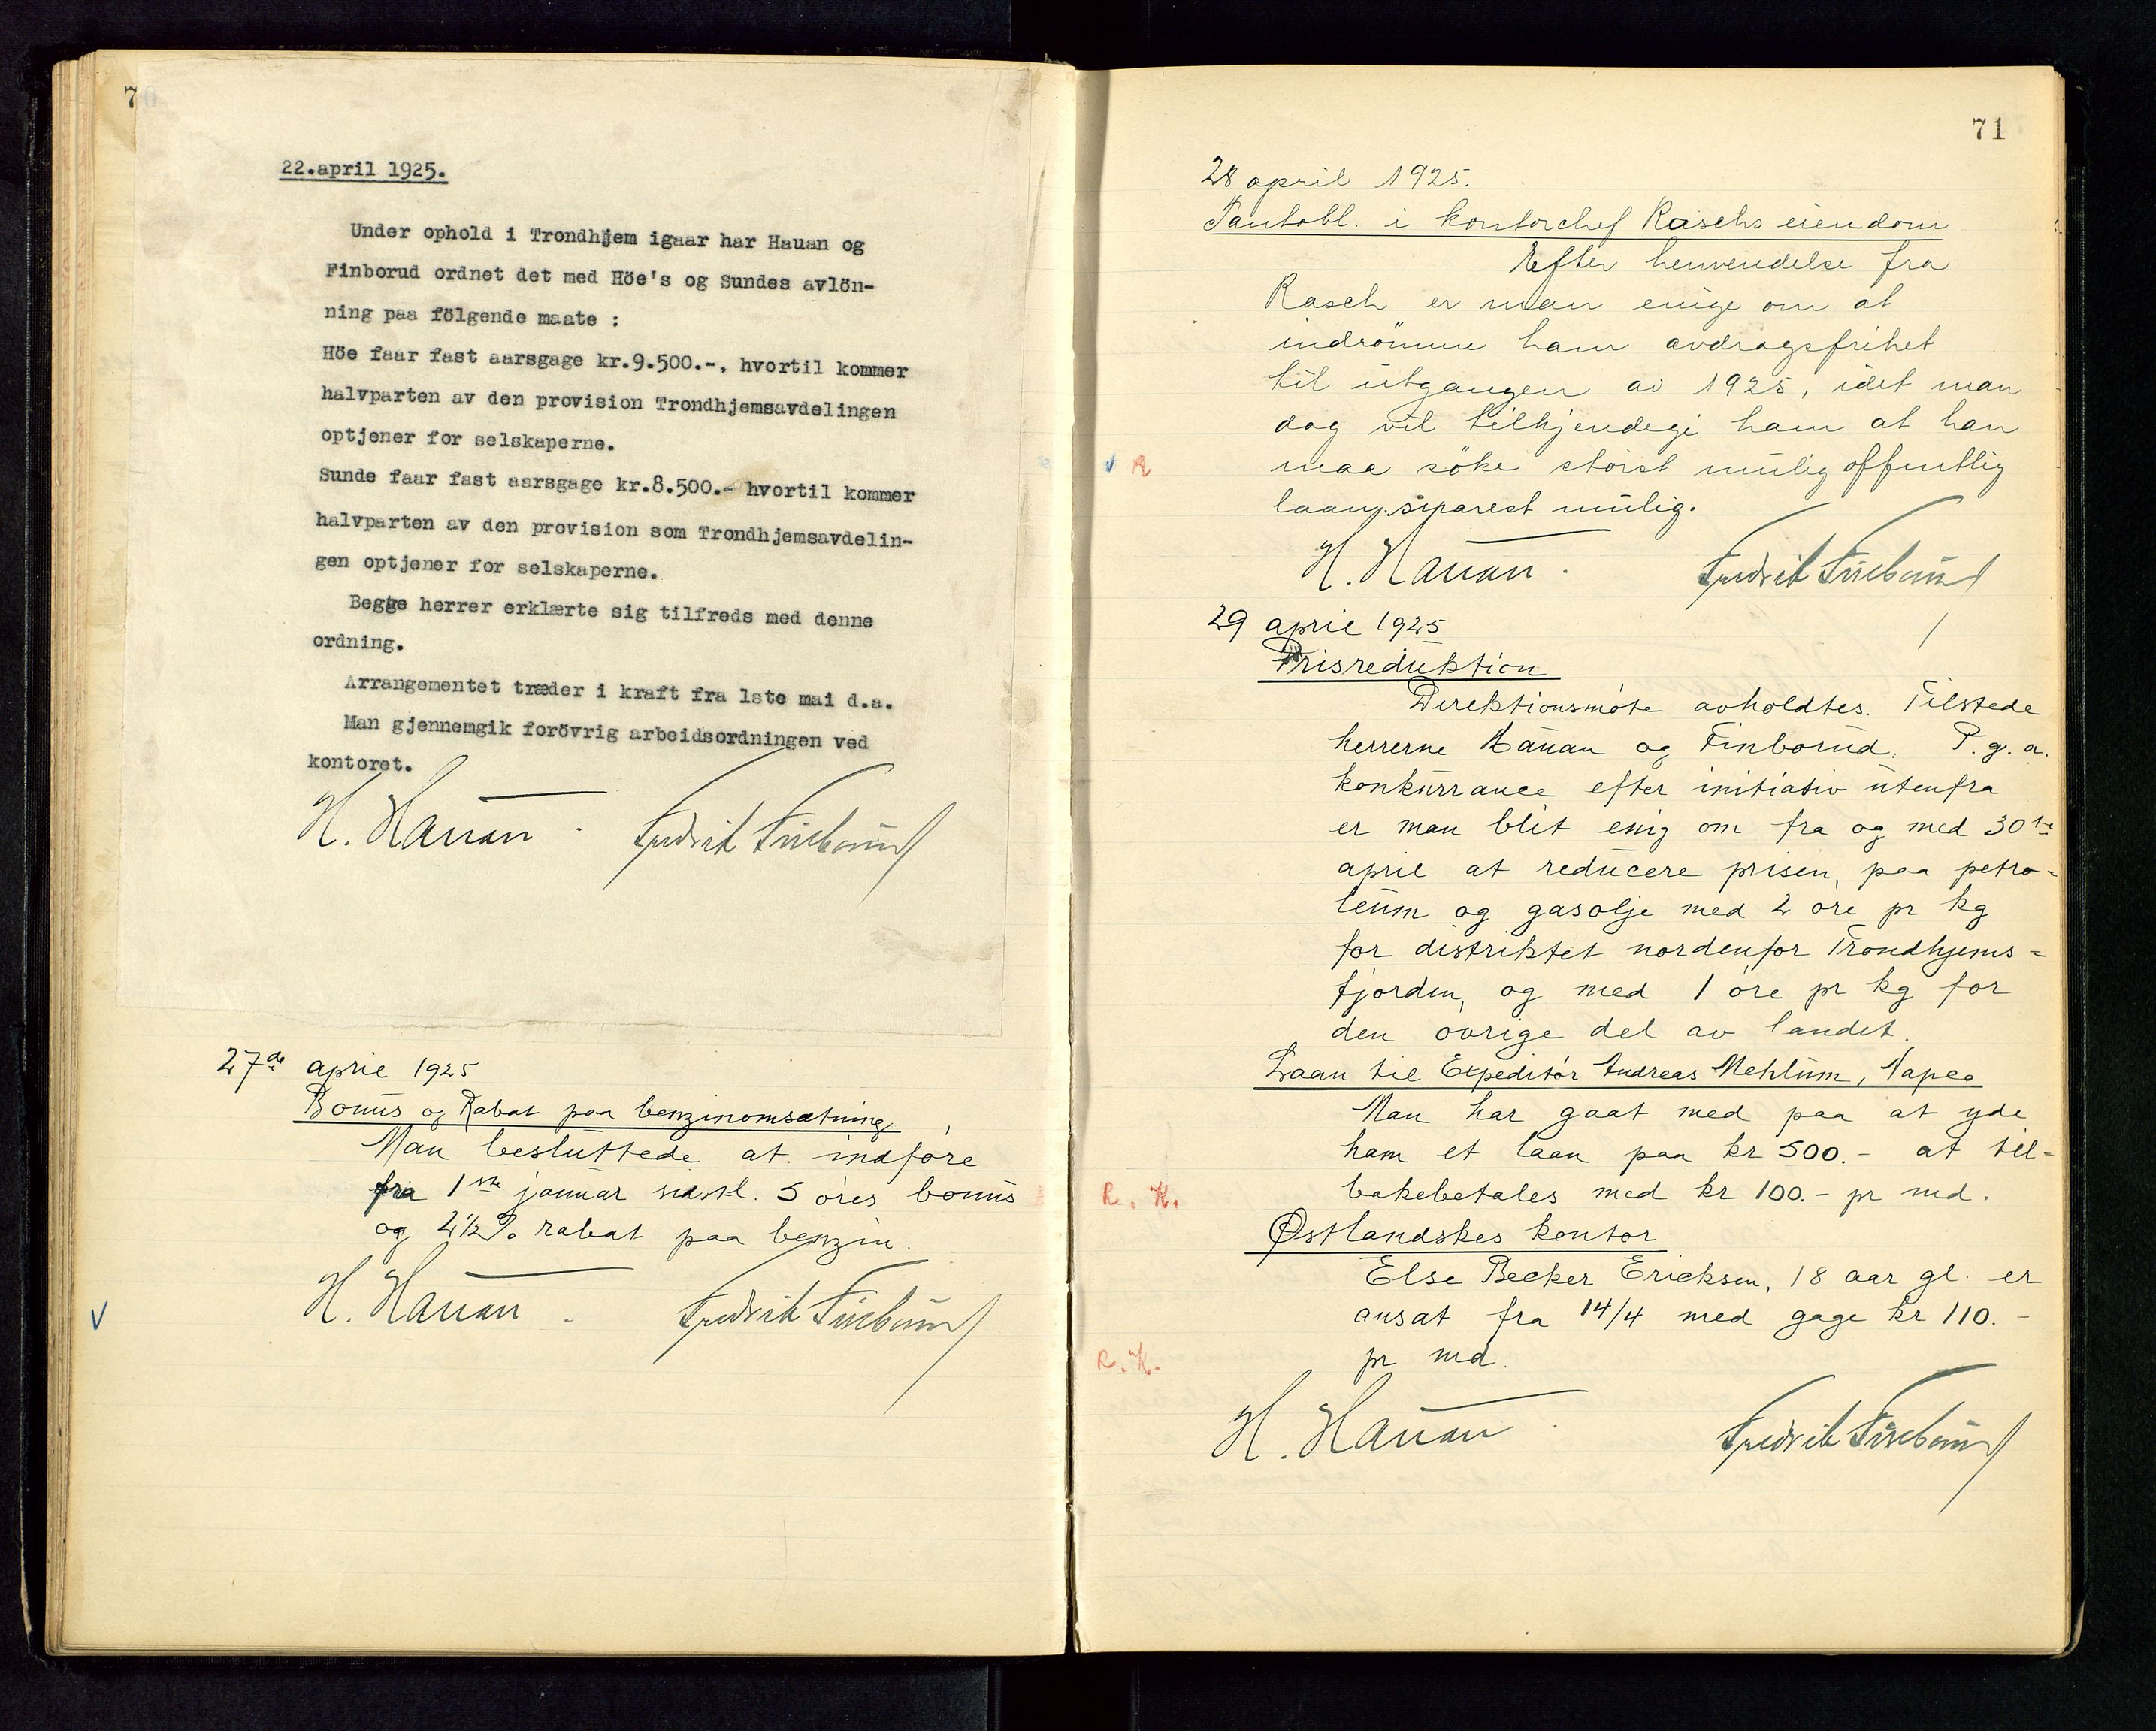 70
22.april 1925.
Under ophold i Trondhjem igaar har Hauan og
Finborud ordnet det med Höe's og Sundes avlön-
ning paa fölgende maate :
Höe faar fast aarsgage kr.9.500.-, hvortil kommer
halvparten av den provision Trondhjemsavdelingen
optjener for selskaperne.
Sunde faar fast aarsgage kr.8.500.- hvortil kommer
halvparten av den provision som Trondhjemsavdelin-
gen optjener for selskaperne.
Begge herrer erklærte sig tilfreds med denne
ordning.
Arrangementet træder i kraft fra 1ste mai d.a.
Man gjennemgik forövrig arbeidsordningen ved
kontoret.
H. Hauan. Fredrik Finborud
27de april 1925
Bonus og Rabat paa benzinomsætning
Man besluttede at indføre
fra 1ste januar 5 øres bonus
og 2½% rabat paa benzin.
H. Hauan. Fredrik Finborud
V
71
28 april 1925.
Pantobl. i kontorchef Raschs eiendom
Efter henvendelse fra
Rasch er man enige om at
indrömme ham avdragsfrihet
til utgangen av 1925, idet man
dog vil tilkjendegi ham at han
V R
maa söke störst mulig offentlig
laan, snarest mulig.
H. Hauan. Fredrik Finborud
29 april 1925
Prisreduktion
Direktionsmøte avholdtes. Tilstede
herrerne Hauan og Finborud. P.g.a.
konkurrance efter initiativ utenfra
er man blit enig om fra og med 30te
april at reducere prisen, paa petro-
leum og gasolje med 2 øre pr kg
for distriktet nordenfor Trondhjems-
fjorden, og med 1 øre pr kg for
den øvrige del av landet.
Laan til Expeditør Andreas Mehlum, Vapea
Man har gaat med paa at yde
ham et laan paa kr 500.- at til-
R. K.
bakebetales med kr 100.- pr md.
Østlandskes kontor
Else Becker Ericksen, 18 aar gl. er
ansat fra 14/4 med gage kr 110.-
R. K.
pr md.
H. Hauan. Fredrik Finborud